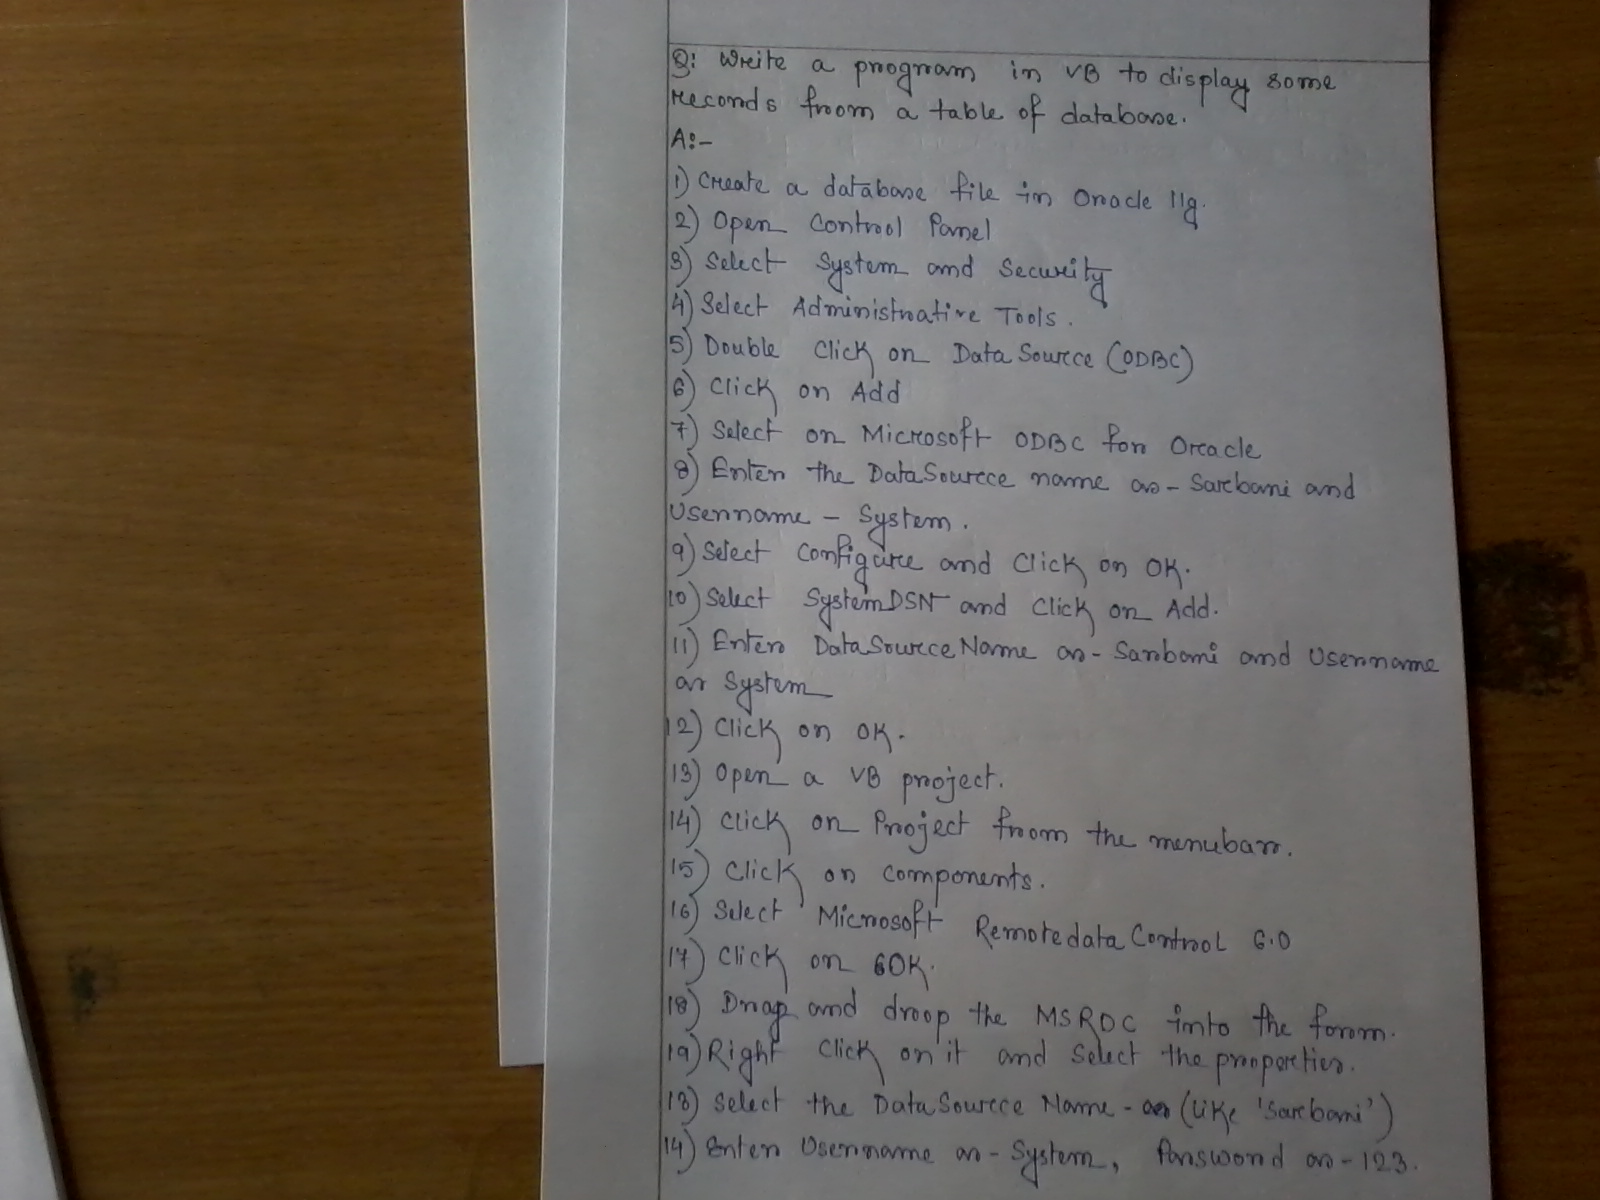 Q: Write a program in VB to display some
records from a table of database.
A:-
1) Create a database file in Oracle 11g.
2) Open Control Panel
3) Select System and Security
4) Select Administrative Tools.
5) Double Click on Data Source (ODBC)
6) Click on Add
7) Select on Microsoft ODBC for Oracle
8) Enter the DataSource name as - Sarbani and
Username - System.
9) Select Configure and Click on OK.
10) Select SystemDSN and Click on Add.
11) Enter DataSourceName as - Sarbani and Username
as System
12) Click on OK.
13) Open a VB project.
14) Click on Project from the menubar.
15) Click on components.
16) Select Microsoft Remotedata Control 6.0
17) Click on OK.
18) Drag and drop the MSRDC into the form.
19) Right Click on it and Select the properties.
13) Select the DataSource Name - as (Like 'Sarbani')
14) Enter Username as - System, Password as - 123.